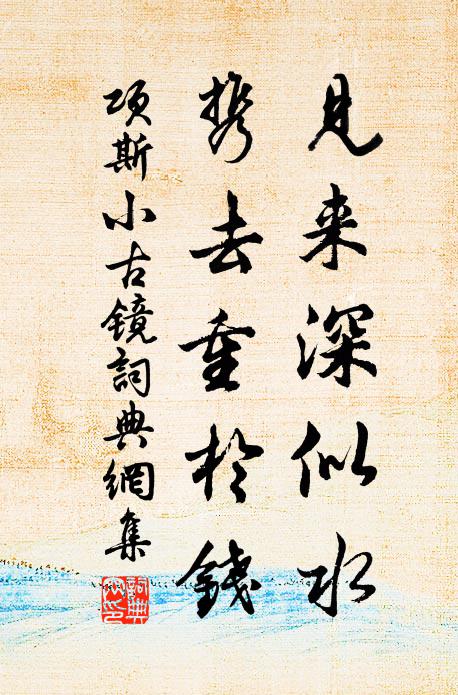 見来深似水
携去重於錢
项斯小古镜詞典網集